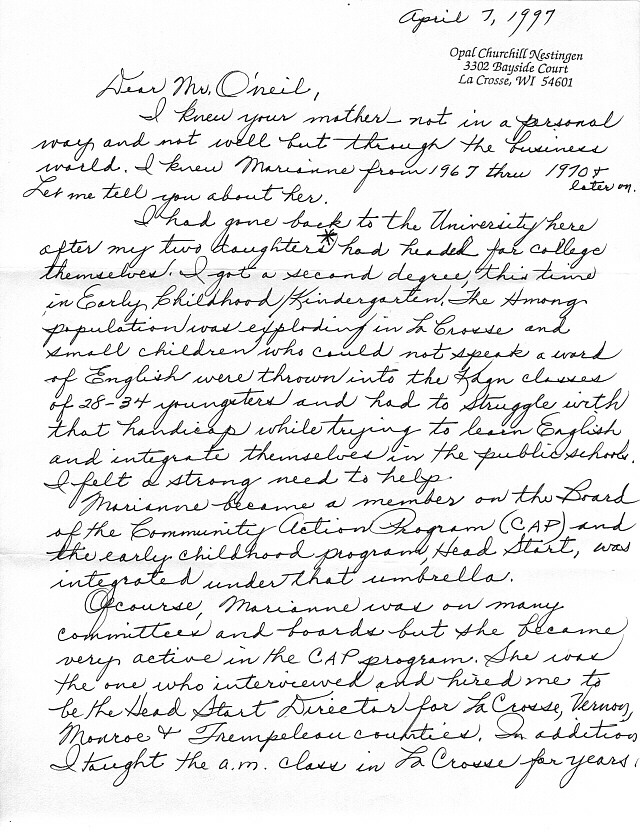 April 7, 1997
Opal Churchill Nestingen
3302 Bayside Court
La Crosse, WI 54601
Dear Mr. O'neil,
I knew your mother - not in a personal
way and not well but through the business
world. I knew Marianne from 1967 thru 1970 &
later on.
Let me tell you about her.
I had gone back to the University here
after my two daughters * had headed for college
themselves! I got a second degree, this time
in Early Childhood/Kindergarten. The Hmong
population was exploding in La Crosse and
small children who could not speak a word
of English were thrown into the Kdgn classes
of 28-34 youngsters and had to struggle with
that handicap while trying to learn English
and integrate themselves in the public schools.
I felt a strong need to help.
Marianne became a member on the Board
of the Community Action Program (CAP) and
the early childhood program, Head Start, was
integrated under that umbrella.
Of course, Marianne was on many
committees and boards but she became
very active in the CAP program. She was
the one who interviewed and hired me to
be the Head Start Director for La Crosse, Vernon,
Monroe & Trempeleau counties. In addition
I taught the a.m. class in La Crosse for years.